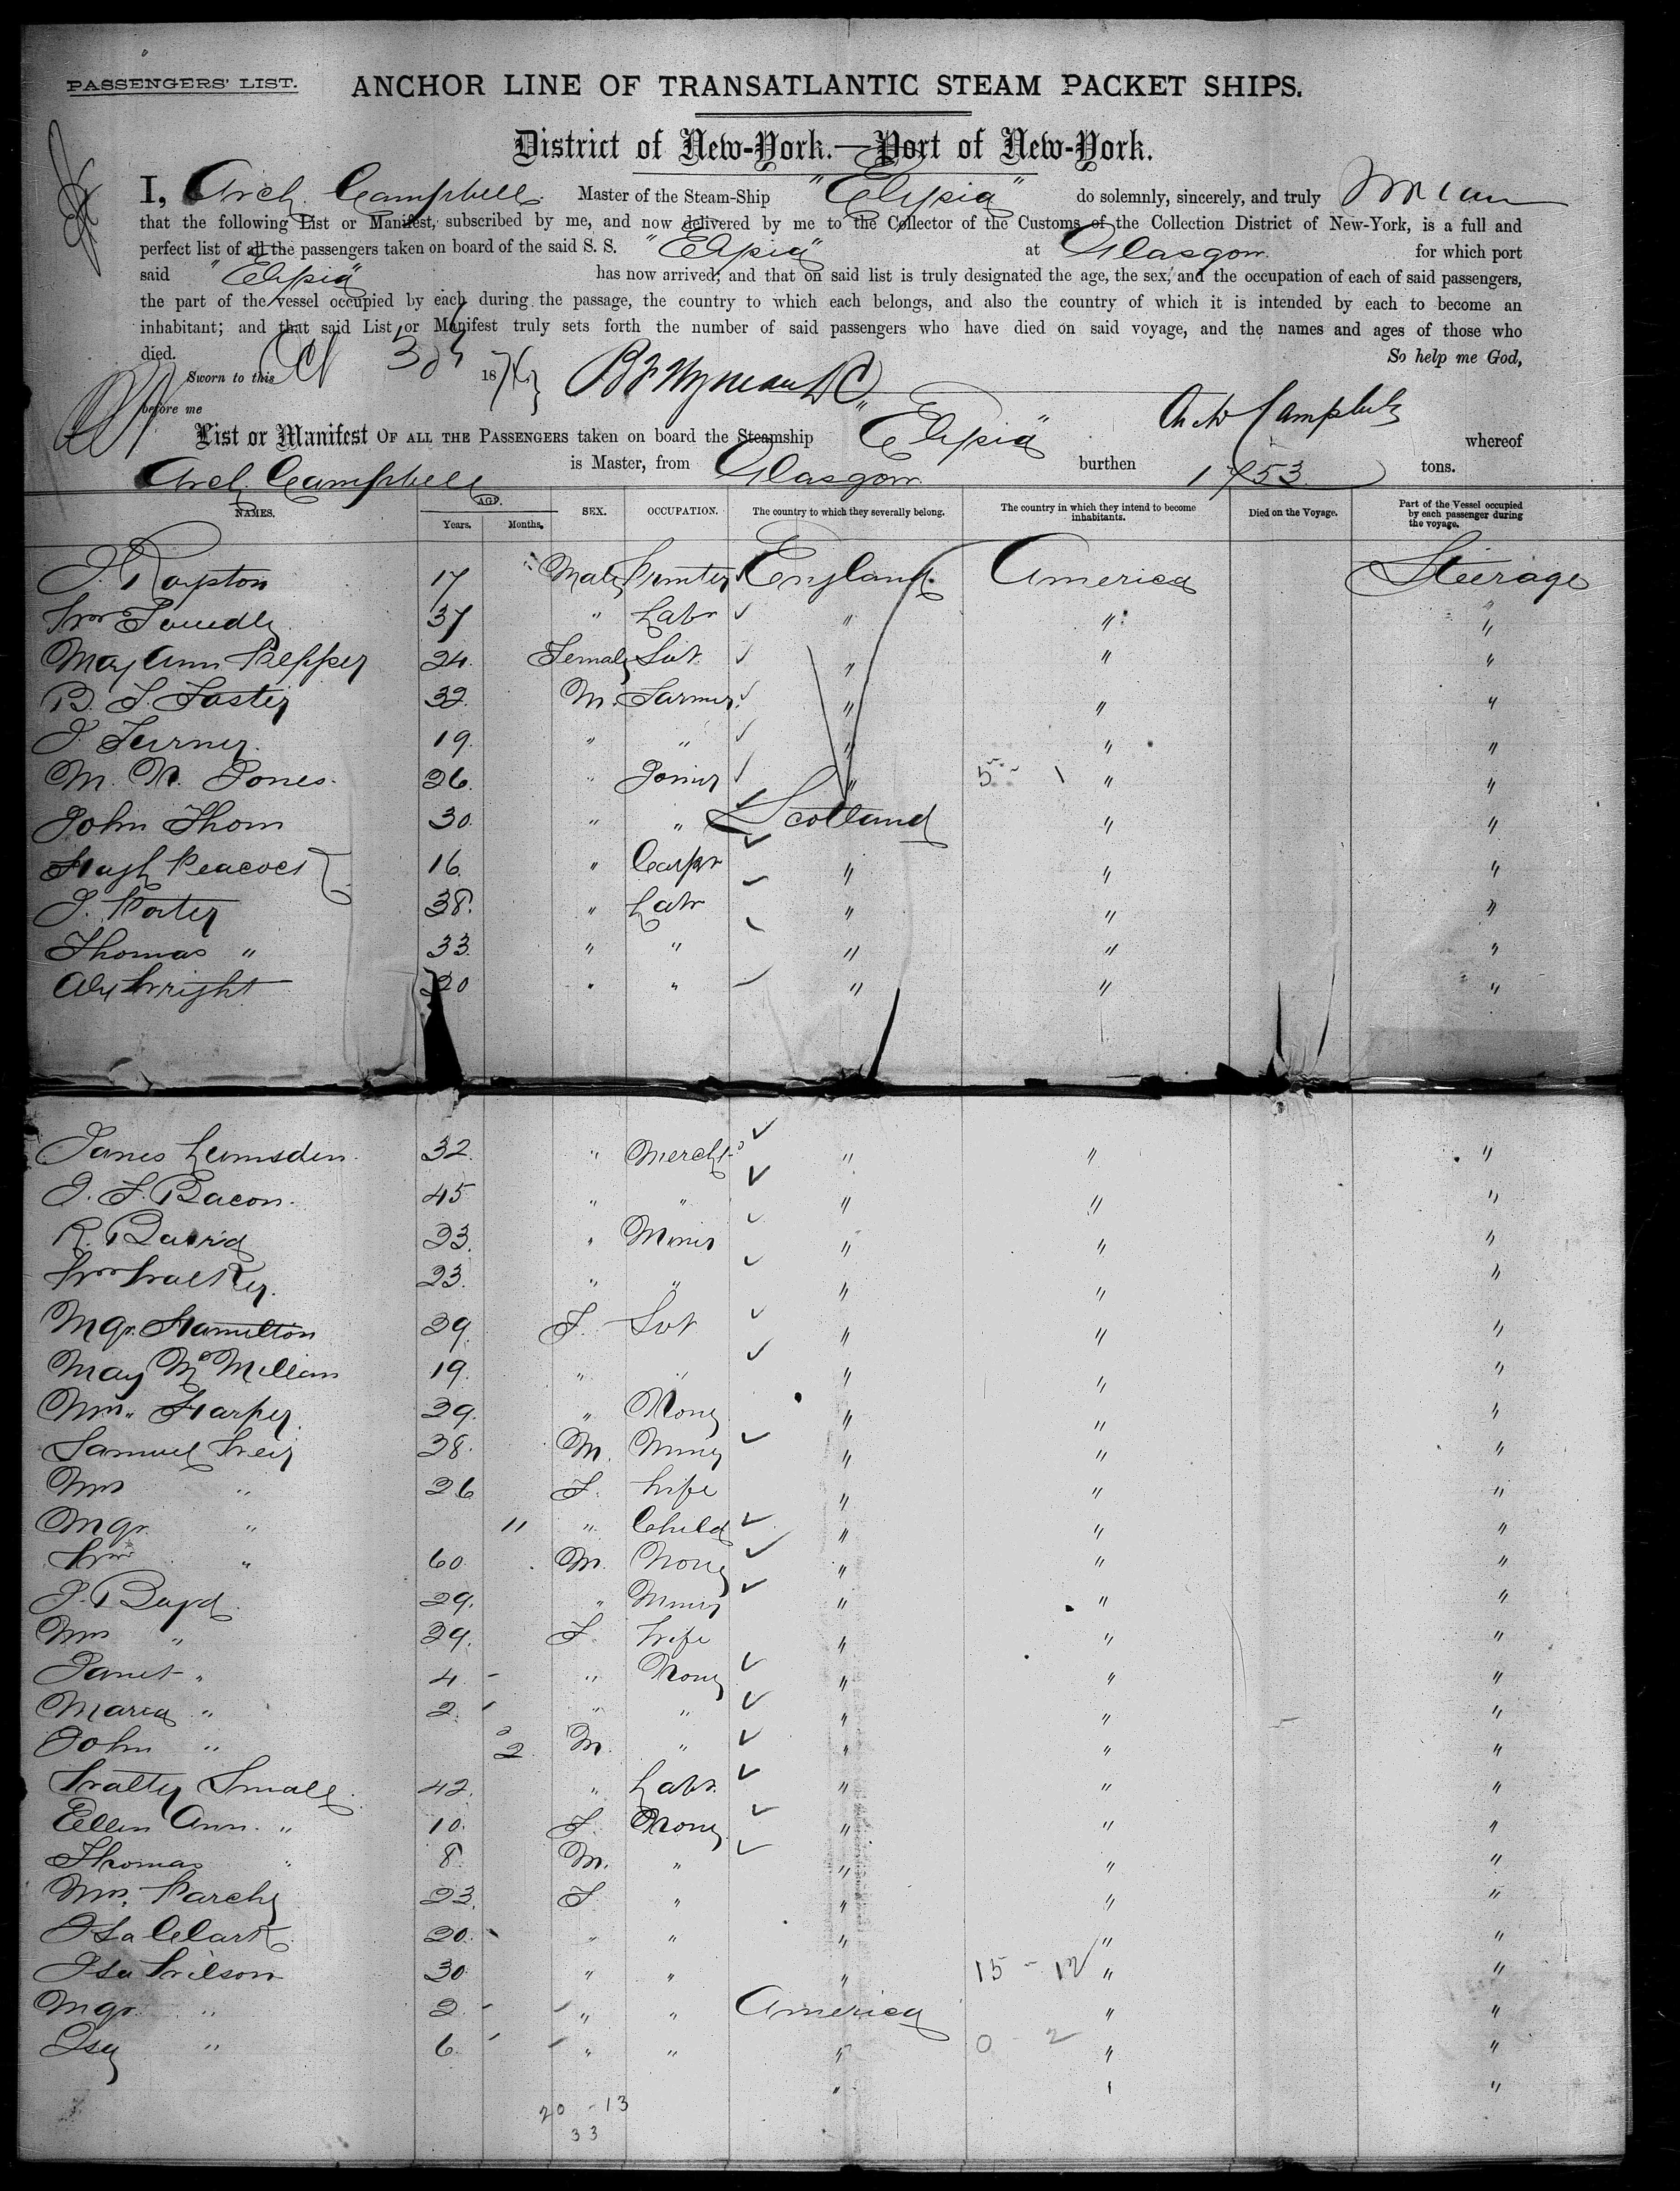 PASSENGERS' LIST. ANCHOR LINE OF TRANSATLANTIC STEAM PACKET SHIPS.
District of New-York.—Port of New-York.
I, Arch. Campbell Master of the Steam-Ship "Elysia" do solemnly, sincerely, and truly swear
that the following List or Manifest, subscribed by me, and now delivered by me to the Collector of the Customs of the Collection District of New-York, is a full and
perfect list of all the passengers taken on board of the said S. S. "Elysia" at Glasgow for which port
said "Elysia" has now arrived; and that on said list is truly designated the age, the sex, and the occupation of each of said passengers,
the part of the vessel occupied by each during the passage, the country to which each belongs, and also the country of which it is intended by each to become an
inhabitant; and that said List or Manifest truly sets forth the number of said passengers who have died on said voyage, and the names and ages of those who
died. So help me God,
Sworn to this Oct 30 1876
before me Arch Campbell
List or Manifest OF ALL THE PASSENGERS taken on board the Steamship "Elysia" whereof
Arch. Campbell is Master, from Glasgow burthen 1753 tons.
NAMES. AGE. Years. Months. SEX. OCCUPATION. The country to which they severally belong. The country in which they intend to become inhabitants. Died on the Voyage. Part of the Vessel occupied by each passenger during the voyage.
J. Royston 17 Male Printer England America Steerage
Wm 37 " Labr " " "
May Ann Pepper 24 Female Svt " " "
B. F. Foster 32 M. Farmer " " "
J. Turner 19 " " " " "
M. N. Jones 26 " Joiner " 5 - 1 " "
John Thom 30 " " Scotland " "
Hugh Peacock 16 " Carpr " " "
J. Porter 38 " Labr " " "
Thomas " 33 " " " " "
Alex Wright 20 " " " " "
James Lumsden 32 " Mercht " " "
J. F. Bacon 45 " " " " "
R. Baird 23 " Miner " " "
Wm Walker 23 " " " " "
Mgr. Hamilton 29 F. Svt " " "
May McMillan 19 " " " " "
Mrs. Harper 29 " None " " "
Samuel Weir 38 M. Miner " " "
Mrs " 26 F. Wife " " "
Mgr. " 11 " Child " " "
Wm " 60 M. None " " "
J. Boyd 29 " Miner " " "
Mrs " 29 F. Wife " " "
Janet " 4 " None " " "
Maria " 2 " " " " "
John " 2 M. " " " "
Walter Small 42 " Labr. " " "
Ellen Ann " 10 F. None " " "
Thomas " 8 M. " " " "
Mrs. 23 F " " " "
Isa Clark 20 " " " " "
Isa Wilson 30 " " " 15 - 12 " "
Mgr. " 2 " " America " "
Isa " 6 " " " 0 - 2 " "
" " "
20 - 13
33